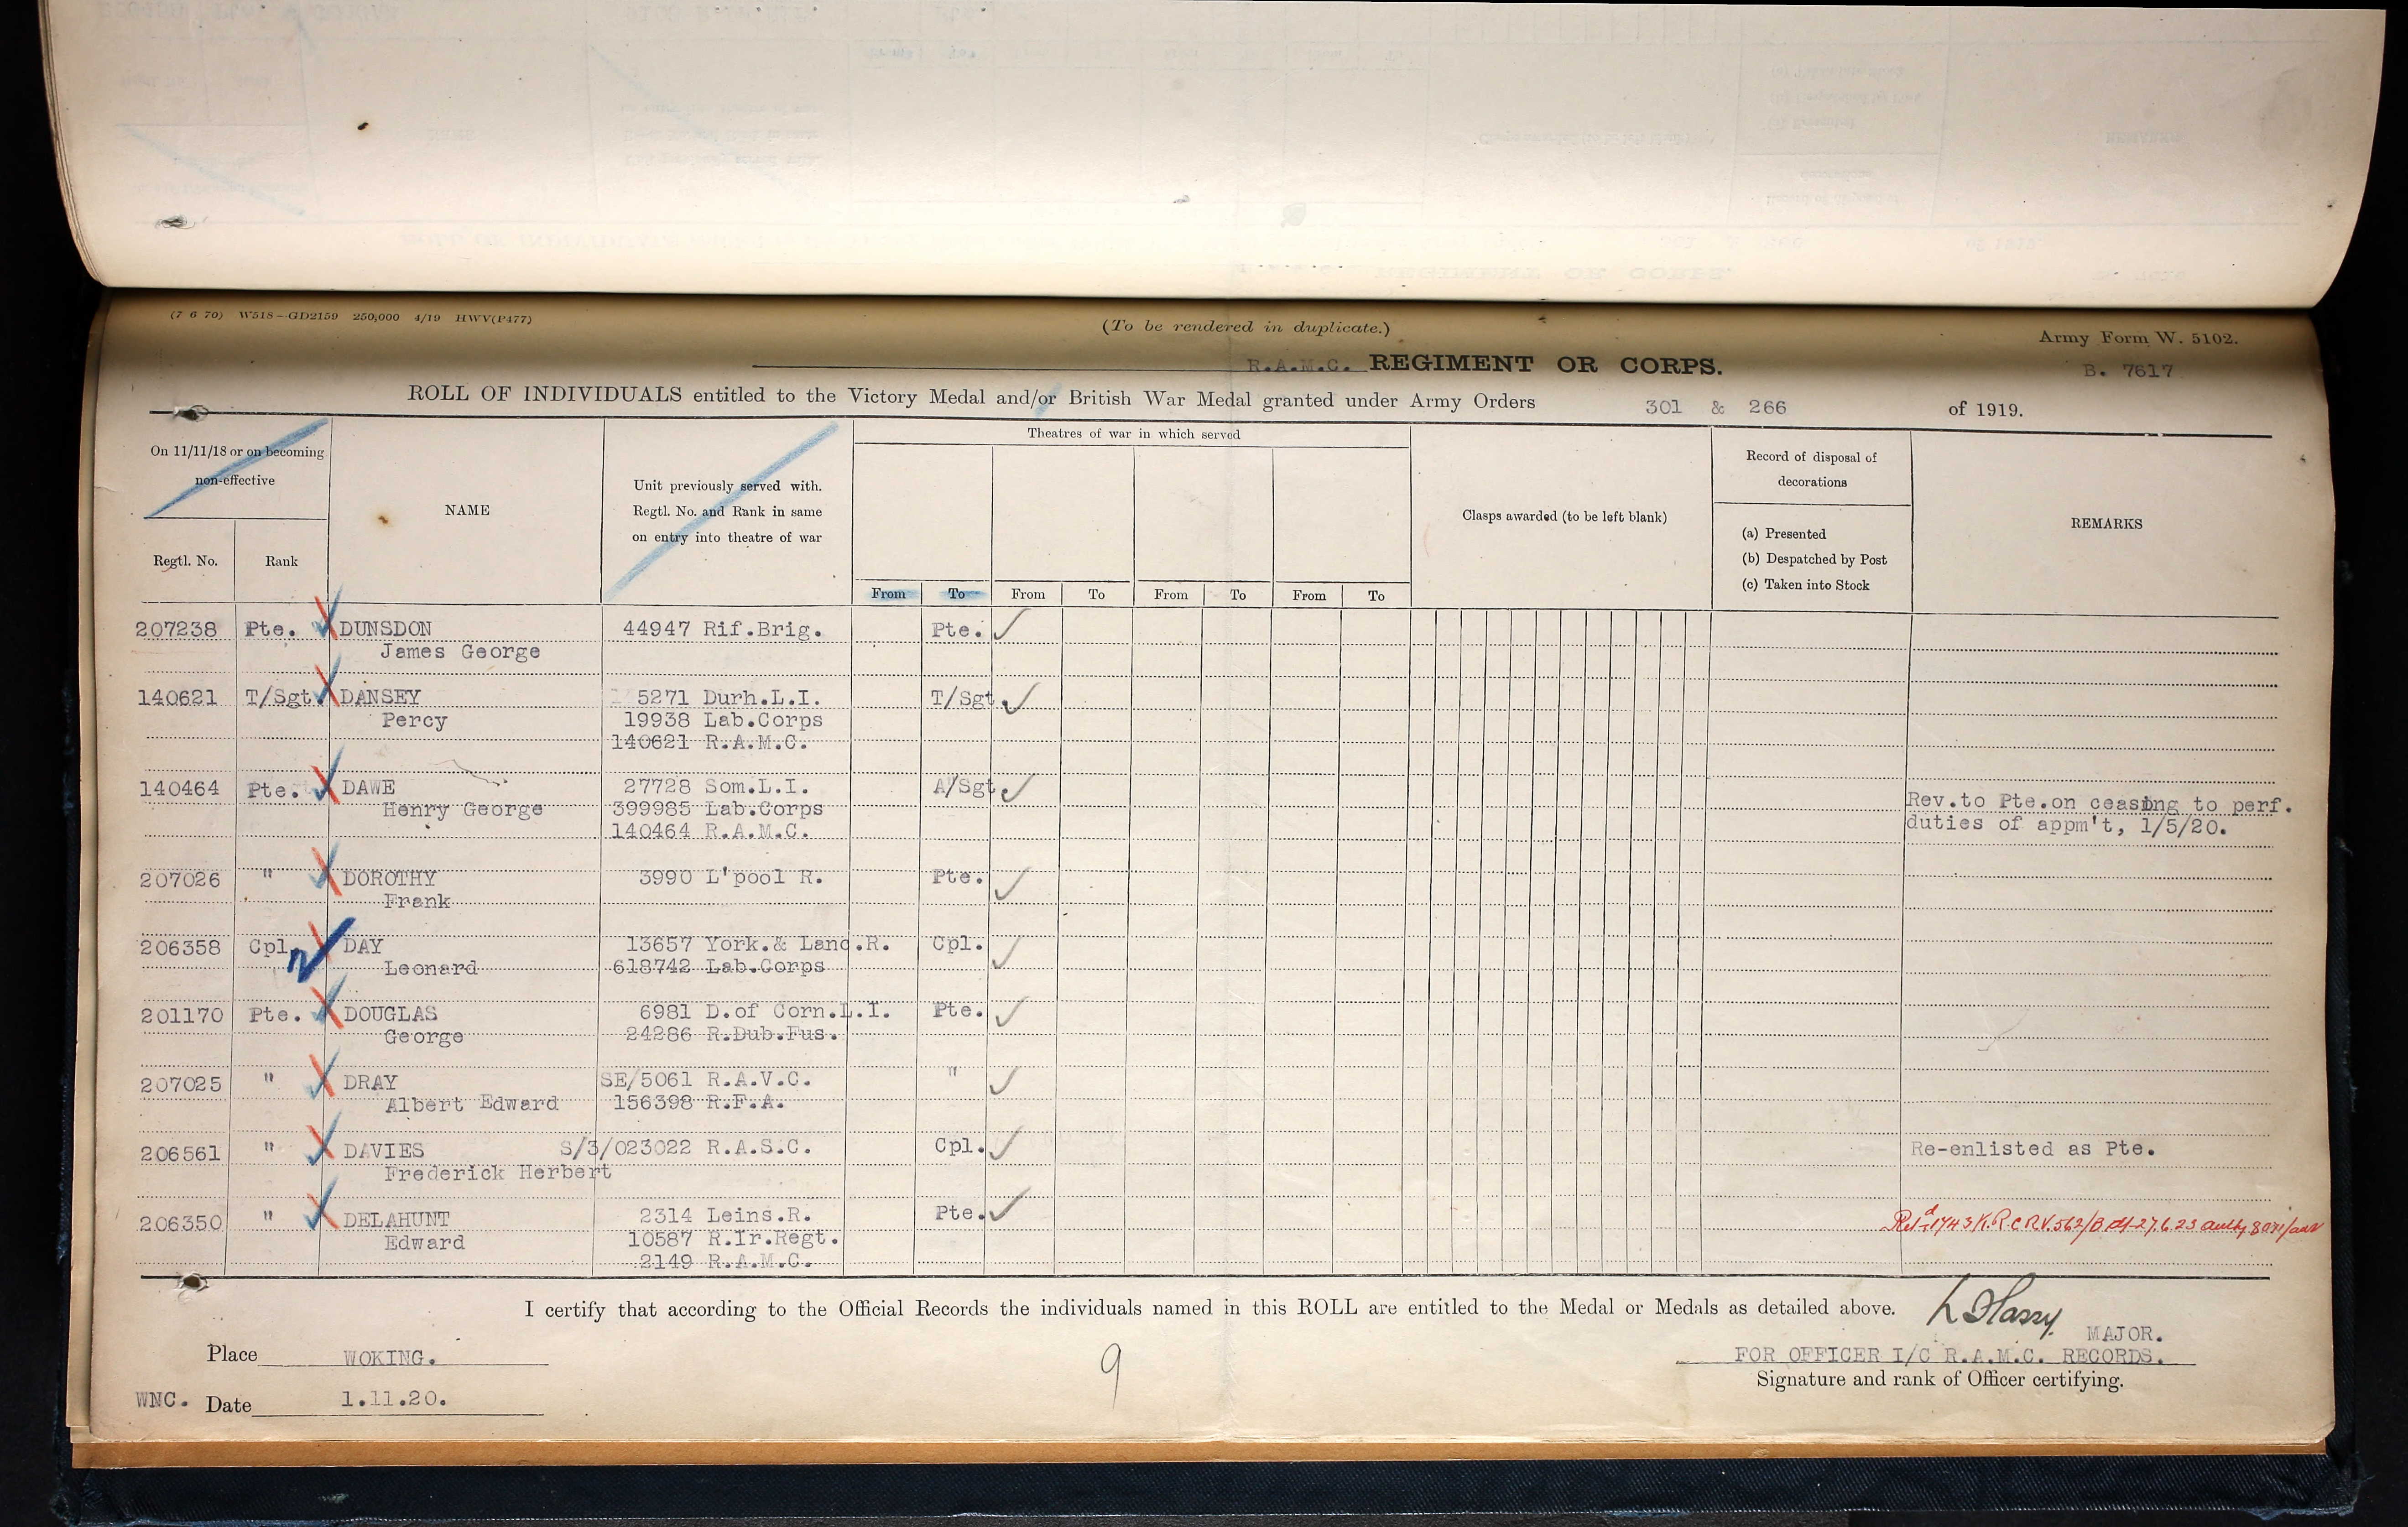 (7 6 70) W518—GD2159 250,000 4/19 HWV(P477)
(To be rendered in duplicate.)
Army Form W. 5102.
R.A.M.C. REGIMENT OR CORPS.
B. 7617
ROLL OF INDIVIDUALS entitled to the Victory Medal and/or British War Medal granted under Army Orders 301 & 266 of 1919.
On 11/11/18 or on becoming
non-effective
Regtl. No. Rank
NAME
Unit previously served with.
Regtl. No. and Rank in same
on entry into theatre of war
Theatres of war in which served
From To From To From To From To
Clasps awarded (to be left blank)
Record of disposal of
decorations
(a) Presented
(b) Despatched by Post
(c) Taken into Stock
REMARKS
207238 Pte. DUNSDON 44947 Rif.Brig. Pte.
James George
140621 T/Sgt DANSEY 5271 Durh.L.I. T/Sgt
Percy 19938 Lab.Corps
140621 R.A.M.C.
140464 Pte. DAWE 27728 Som.L.I. A/Sgt
Henry George 399985 Lab.Corps Rev.to Pte.on ceasing to perf.
140464 R.A.M.C. duties of appm't, 1/5/20.
207026 " DOROTHY 3990 L'pool R. Pte.
Frank
206358 Cpl. DAY 13657 York.& Lanc.R. Cpl.
Leonard 618742 Lab.Corps
201170 Pte. DOUGLAS 6981 D.of Corn.L.I. Pte.
George 24286 R.Dub.Fus.
207025 " DRAY SE/5061 R.A.V.C. "
Albert Edward 156398 R.F.A.
206561 " DAVIES S/3/023022 R.A.S.C. Cpl. Re-enlisted as Pte.
Frederick Herbert
206350 " DELAHUNT 2314 Leins.R. Pte.
Edward 10587 R.Ir.Regt.
2149 R.A.M.C.
I certify that according to the Official Records the individuals named in this ROLL are entitled to the Medal or Medals as detailed above.
MAJOR.
Place WOKING.
FOR OFFICER I/C R.A.M.C. RECORDS.
Signature and rank of Officer certifying.
WNC. Date 1.11.20.
9